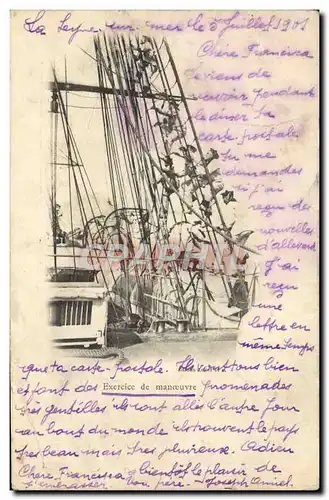 La Seyne sur mer le 5 Juillet 1901
Chère Francisca
je viens de
recevoir pendant
le diner ta
carte postale
Tu me
demandes
si j'ai
reçu des
nouvelles
d'allevard
J'ai
reçu
une
lettre en
même temps
que ta carte postale. Ils vont tous bien
et font des promenades
Exercice de manœuvre
très gentilles ils sont allés l'autre jour
au bout du monde ils trouvent le pays
très beau mais très pluvieux. Adieu
Chère Francisca à bientôt le plaisir de
t'embrasser ton père Joseph
CPARAMA